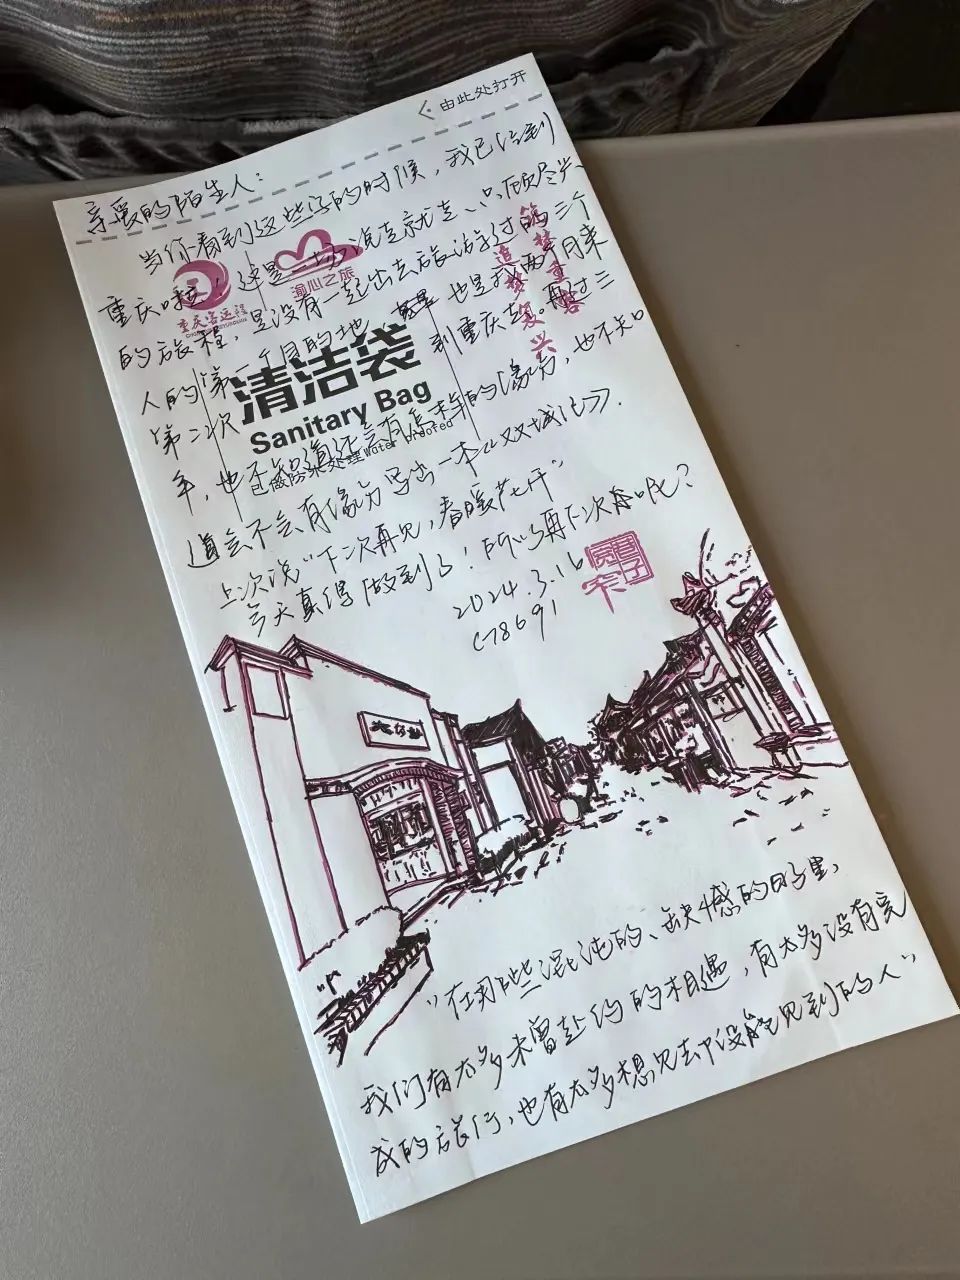 由此处打开
亲爱的陌生人：
当你看到这些字的时候，我已经到
重庆啦，这是一场说走就走、只顾尽兴
的旅程，是没有一起出去旅游过的三个
人的第一个目的地 也是我两个月来
第二次到重庆去。再过三
年，也不知道还会有怎样的缘分，也不知
道会不会有缘分写出一本《双城记》.
上次说“下次再见，春暖花开”
今天真得做到了！所以再下次春吧？
2024.3.16
C78691
筑梦重客
追梦复兴
重庆客运段
渝心之旅
清洁袋
Sanitary Bag
已做防水处理Water proofed
君子
“在那些混沌的、缺憾的日子里，
我们有太多未曾赴约的相遇，有太多没有完
成的旅行，也有太多想见却没能见到的人”